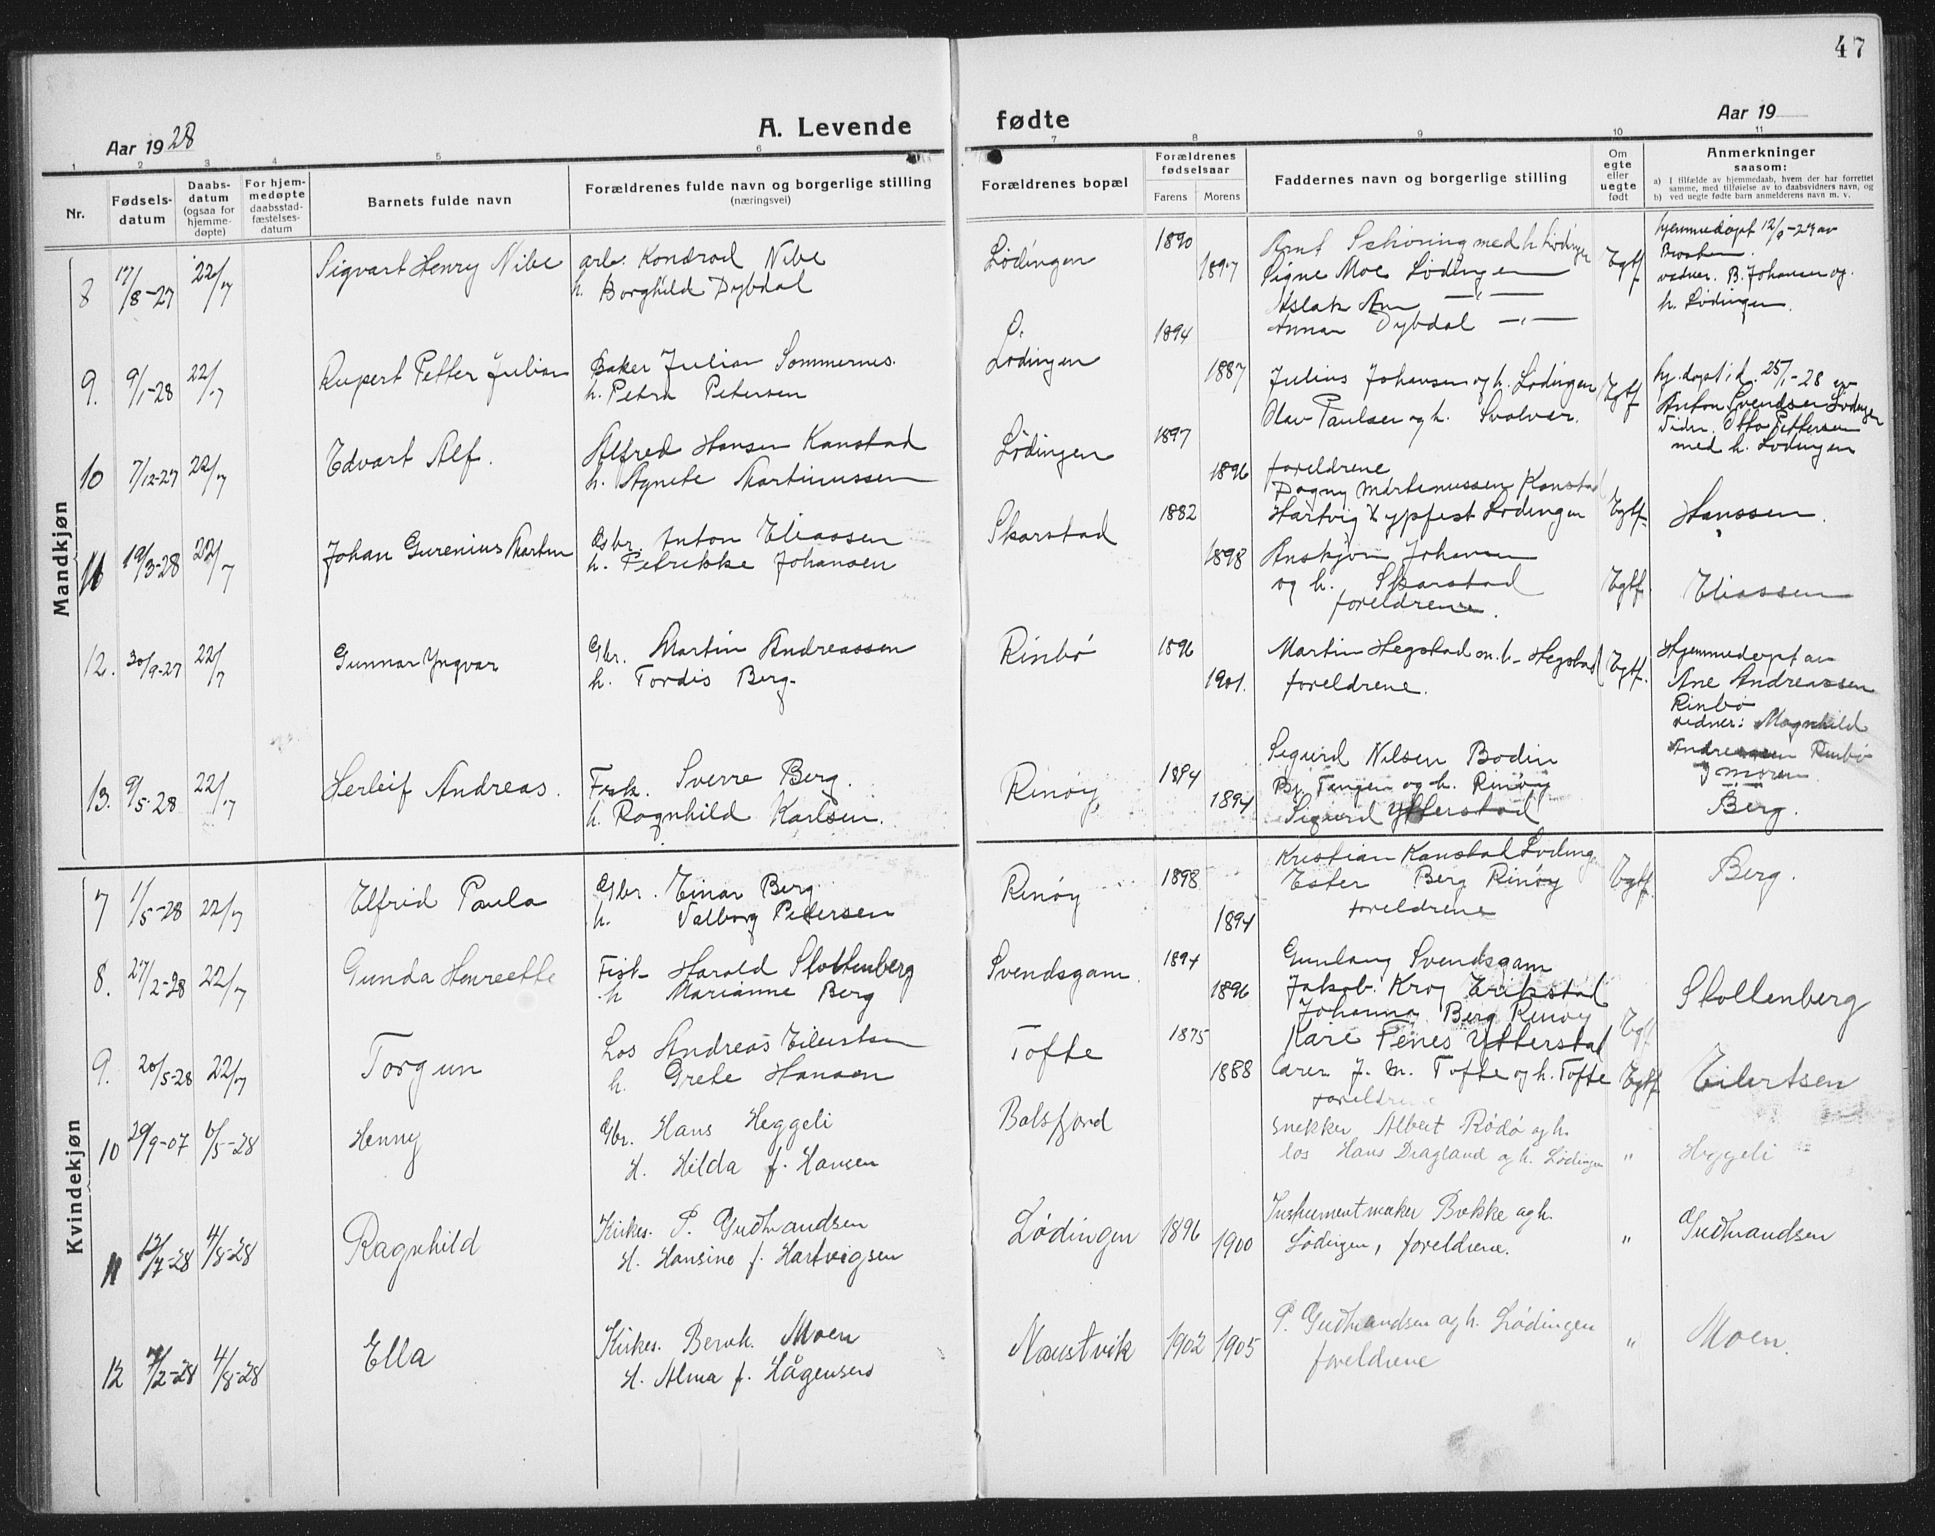 47
Aar 1928
A. Levende
fødte
Aar 19
1 2 3 4 5 6 7 8 9 10 11
Nr.
Fødsels-
datum
Daabs-
datum
(ogsaa for
hjemme-
døpte)
For hjem-
medøpte
daabsstad-
fæstelses-
datum
Barnets fulde navn
Forældrenes fulde navn og borgerlige stilling
(næringsvei)
Forældrenes bopæl
Forældrenes
fødselsaar
Farens Morens
Faddernes navn og borgerlige stilling
Om
egte
eller
uegte
født
Anmerkninger
saasom:
a) I tilfælde av hjemmedaab, hvem der har forrettet
samme, med tilføielse av to daabsvidners navn, og
b) ved uegte fødte barn anmelderens navn m. v.
Mandkjøn
8 17/8-27 22/7 Sigvart Henry Nibe
arb. Kondrad Nibe
h. Borghild Dybdal
Lødingen 1890 1897
Arnt Schøning med h. Lødingen
Signe Moe Lødingen
Aslak Am — " —
Annar Dybdal — " —
Egtf.
hjemmedøpt 12/9-27 av
vidner. B. Johansen og
h. Lødingen.
9. 9/1-28 22/7 Rupert Petter Julian
Baker Julian Sommernes.
h. Petra Petersen
Ø.
Lødingen 1894 1887
Julius Johansen og h. Lødingen
Olav Paulsen og h. Svolvær.
Egtf.
hj. døpt i d. 25/1-28 av
Anton Svendsen Lødingen
Vidn. Otto Pettersen
med h. Lødingen
10 7/12-27 22/7 Edvart Alf.
Alfred Hansen Kanstad
h. Agnete Martinussen
Lødingen 1897 1896
foreldrene
Dagny Martinussen Kanstad
Hartvig Lødingen
Egtf.
Hanssen.
11 19/3-28 22/7 Johan Gurenius Martin
Gsbr. Anton Eliassen
h. Petrikke Johansen
Skarstad 1882 1898
Anskjørn Johansen
og h. Skarstad
foreldrene.
Egtf.
Eliassen
12. 30/9-27 22/7 Gunnar Yngvar
Gbr. Martin Andreassen
h. Tordis Berg.
Rinbø 1896 1901.
Martin Hegstad m. h. Hegstad
foreldrene.
Egtf.
Hjemmedøpt av
Ane Andreassen
Rinbø
vidner: Magnhild
Andreassen Rinbø
og moren.
13. 9/5-28 22/7 Herleif Andreas.
Fisk. Sverre Berg.
h. Ragnhild Karlsen.
Rinøy 1894 1894
Sigurd Nilsen Bodin
Bj. Tangen og h. Rinøy
Sigurd Ytterstad
Berg.
Kvindekjøn
7 1/5-28 22/7 Elfrid Paula
Gsbr. Einar Berg
h. Valborg Petersen
Rinøy 1898 1894
Kristian Kanstad Lødingen
Ester Berg Rinøy
foreldrene
Egtf.
Berg.
8. 27/2-28 22/7 Gunda Henreette
Fisk- Harald Skoltenberg
h Marianne Berg
Svendsgam 1894 1896
Gunlaug Svendsgam
Jakob Krog Erikstad
Johanna Berg Rinøy
Kåre Fenes Ytterstad
Egtf
Skollenberg
9. 20/5-28 22/7 Torgun
Los Andreas Eilertsen
h. Grete Hansen
Tofte 1875 1888
Caren J. M. Tofte og h. Tofte
foreldrene
Egtf
Eilertsen
10 29/9-07 6/5-28 Henny
Gbr. Hans Heggeli
H. Hilda f. Hansen
Balsfjord
snekker Albert Rødø og h.
los Hans Dragland og h. Lødingen
"
Heggeli
11 12/7-28 4/8-28 Ragnhild
Kirkes. P. Gudbrandsen
H. Hansine f. Hartvigsen
Lødingen 1896 1900
Instrumentmaker Bekke og h.
Lødingen, foreldrene.
"
Gudbrandsen
12 7/2-28 4/8-28 Ella
Kirkes. Bernh. Moen
H. Alma f. Hågensen
Naustvik 1902 1905
P. Gudbrandsen og h. Lødingen
foreldrene
"
Moen.